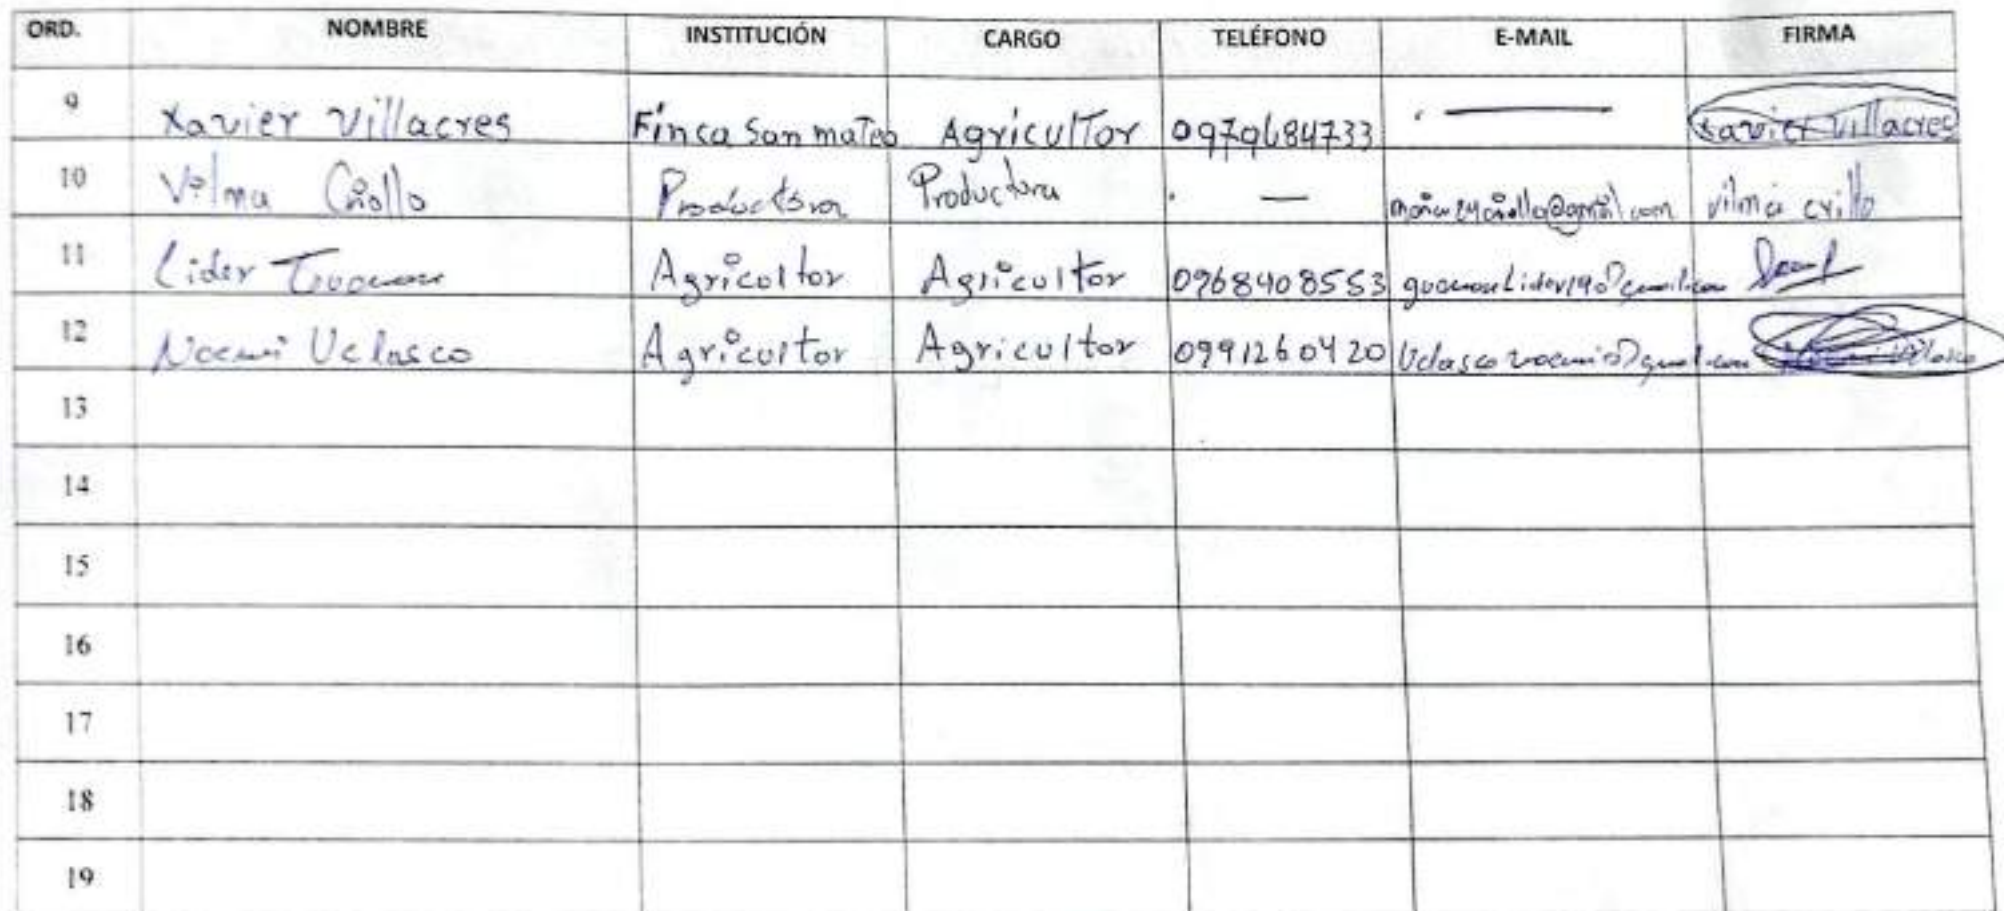 ORD. NOMBRE INSTITUCIÓN CARGO TELÉFONO E-MAIL FIRMA
9 Xavier Villacres Finca San mateo Agricultor 0979684733 Xavier Villacres
10 Vilma Criollo Productora Productora — vilma crillo
11 Lider Agricoltor Agricultor 0968408553
12 Noemi Velasco Agricultor Agricultor 0991260420
13
14
15
16
17
18
19